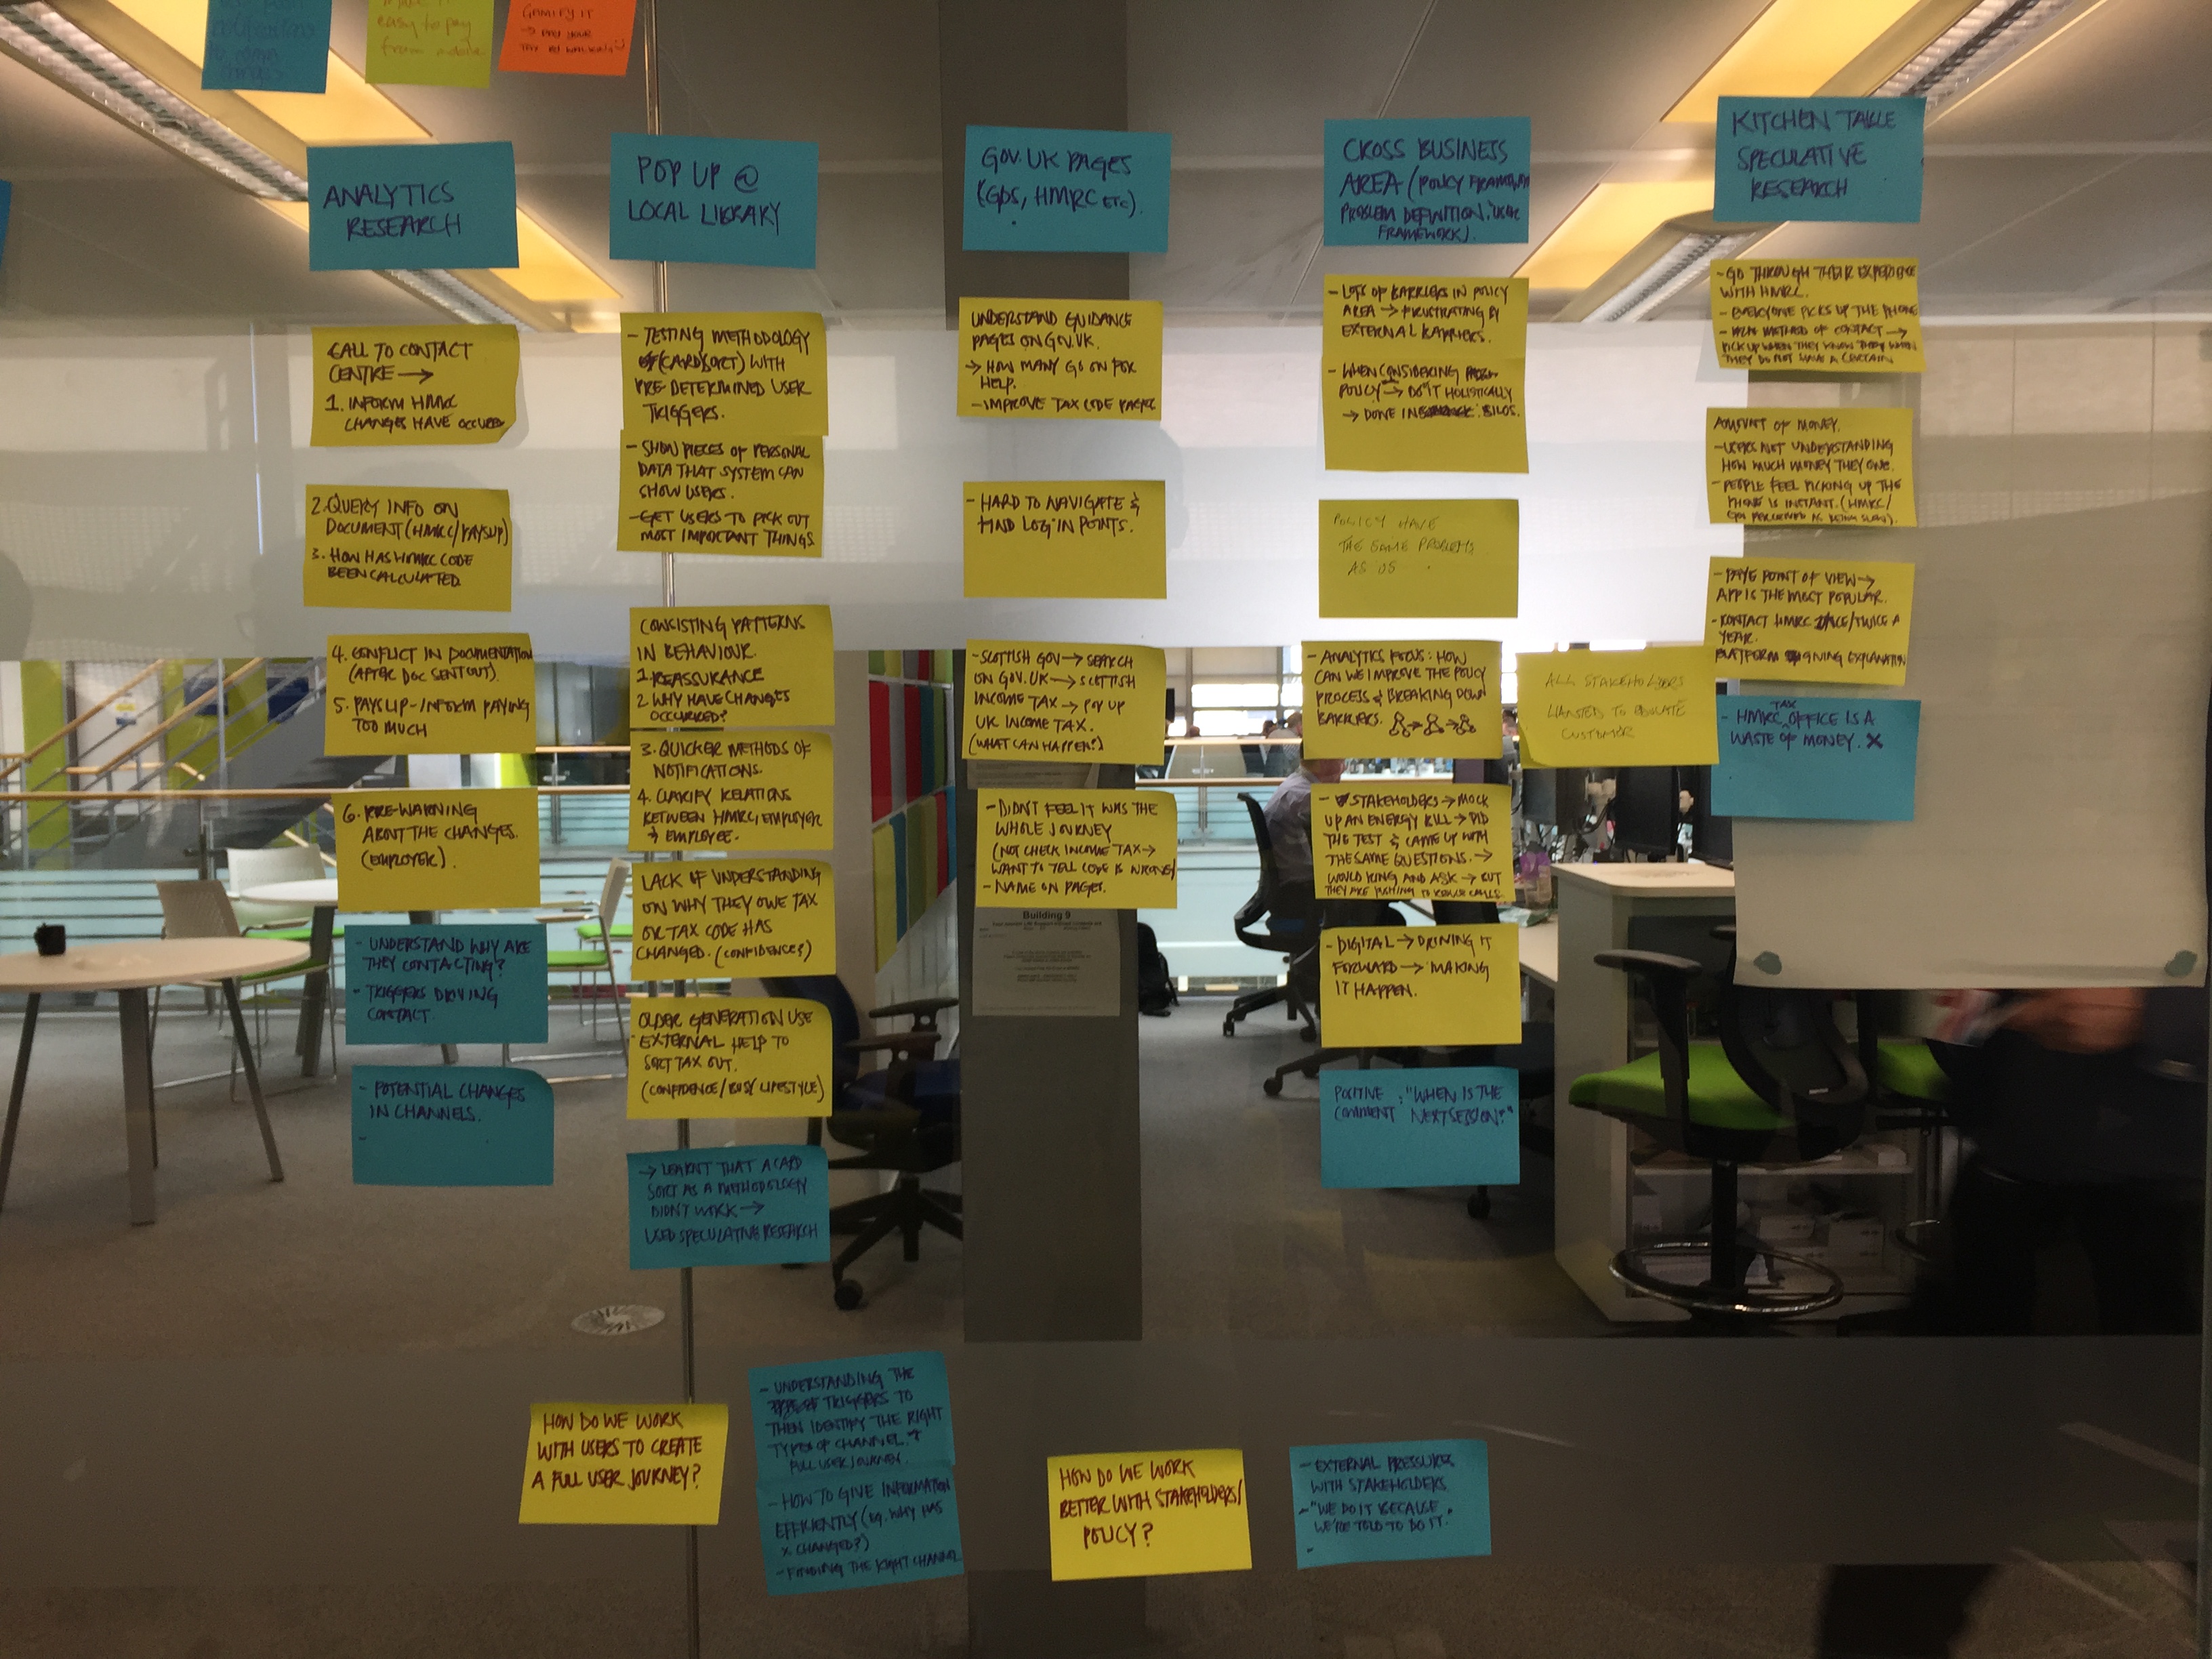 easy to pay
from mobile
GAMIFY IT
ANALYTICS
RESEARCH
CALL TO CONTACT
CENTRE →
1. INFORM HMRC
CHANGES HAVE OCCURED
2. QUERY INFO ON
DOCUMENT (HMRC/PAYSLIP)
3. HOW HAS HMRC CODE
BEEN CALCULATED
4. CONFLICT IN DOCUMENTATION
(AFTER DOC SENT OUT).
5. PAYSLIP - INFORM PAYING
TOO MUCH
6. PRE-WARNING
ABOUT THE CHANGES.
(EMPLOYER).
- UNDERSTAND WHY ARE
THEY CONTACTING?
- TRIGGERS DRIVING
CONTACT
- POTENTIAL CHANGES
IN CHANNELS.
-
POP UP @
LOCAL LIBRARY
- TESTING METHODOLOGY
(CARD SORT) WITH
PRE DETERMINED USER
TRIGGERS.
- SHOW PIECES OF PERSONAL
DATA THAT SYSTEM CAN
SHOW USERS.
- GET USERS TO PICK OUT
MOST IMPORTANT THINGS
CONSISTING PATTERNS
IN BEHAVIOUR.
1 REASSURANCE
2 WHY HAVE CHANGES
OCCURRED?
3. QUICKER METHODS OF
NOTIFICATIONS.
4. CLARIFY RELATIONS
BETWEEN HMRC, EMPLOYER
& EMPLOYEE.
LACK OF UNDERSTANDING
ON WHY THEY OWE TAX
OR TAX CODE HAS
CHANGED. (CONFIDENCE?)
OLDER GENERATION USE
EXTERNAL HELP TO
SORT TAX OUT.
(CONFIDENCE/BUSY LIFESTYLE)
→ LEARNT THAT A CARD
SORT AS A METHODOLOGY
DIDN'T WORK →
USED SPECULATIVE RESEARCH
GOV.UK PAGES
(GDS, HMRC ETC).
UNDERSTAND GUIDANCE
PAGES ON GOV.UK.
→ HOW MANY GO ON FOR
HELP.
- IMPROVE TAX CODE PAGES
- HARD TO NAVIGATE &
FIND LOG IN POINTS.
- SCOTTISH GOV → SEARCH
ON GOV.UK → SCOTTISH
INCOME TAX → POP UP
UK INCOME TAX.
(WHAT CAN HAPPEN?)
- DIDN'T FEEL IT WAS THE
WHOLE JOURNEY
(NOT CHECK INCOME TAX →
WANT TO TELL CODE IS WRONG)
- NAME ON PAGES.
Building 9
CROSS BUSINESS
AREA (POLICY FRAMEWORK
PROBLEM DEFINITION.
FRAMEWORK).
- LOTS OF BARRIERS IN POLICY
AREA → FRUSTRATING BY
EXTERNAL BARRIERS.
- WHEN CONSIDERING
POLICY → DO IT HOLISTICALLY
→ DONE IN SILOS.
POLICY HAVE
THE SAME PROBLEMS
AS US
- ANALYTICS FOCUS: HOW
CAN WE IMPROVE THE POLICY
PROCESS & BREAKING DOWN
BARRIERS.
ALL STAKEHOLDERS
WANTED TO EDUCATE
CUSTOMER
- STAKEHOLDERS → MOCK
UP AN ENERGY BILL → DID
THE TEST & CAME UP WITH
THE SAME QUESTIONS. →
WOULD RING AND ASK → BUT
THEY ARE PUSHING TO REDUCE CALLS.
- DIGITAL → DRIVING IT
FORWARD → MAKING
IT HAPPEN.
POSITIVE : "WHEN IS THE
COMMENT NEXT SESSION?"
KITCHEN TABLE
SPECULATIVE
RESEARCH
- GO THROUGH THEIR EXPERIENCE
WITH HMRC.
- EVERYONE PICKS UP THE PHONE
- METHOD OF CONTACT →
PICK UP WHEN THEY KNOW THEY WHEN
THEY DO NOT HAVE A CERTAIN
AMOUNT OF MONEY.
- USERS NOT UNDERSTANDING
HOW MUCH MONEY THEY OWE.
- PEOPLE FEEL PICKING UP THE
PHONE IS INSTANT. (HMRC/
PERCEIVED AS BEING SLOW).
- PAYE POINT OF VIEW →
APP IS THE MOST POPULAR.
- CONTACT HMRC ONCE/TWICE A
YEAR.
PLATFORM EXPLANATION
- HMRC TAX OFFICE IS A
WASTE OF MONEY. X
HOW DO WE WORK
WITH USERS TO CREATE
A FULL USER JOURNEY?
- UNDERSTANDING THE
TRIGGERS TO
THEN IDENTIFY THE RIGHT
TYPES OF CHANNEL. +
FULL USER JOURNEY.
- HOW TO GIVE INFORMATION
EFFICIENTLY (EG. WHY HAS
X CHANGED?)
- FINDING THE RIGHT CHANNEL
HOW DO WE WORK
BETTER WITH STAKEHOLDERS/
POLICY?
- EXTERNAL PRESSURES
WITH STAKEHOLDERS
- "WE DO IT BECAUSE
WE'RE TOLD TO DO IT."
-